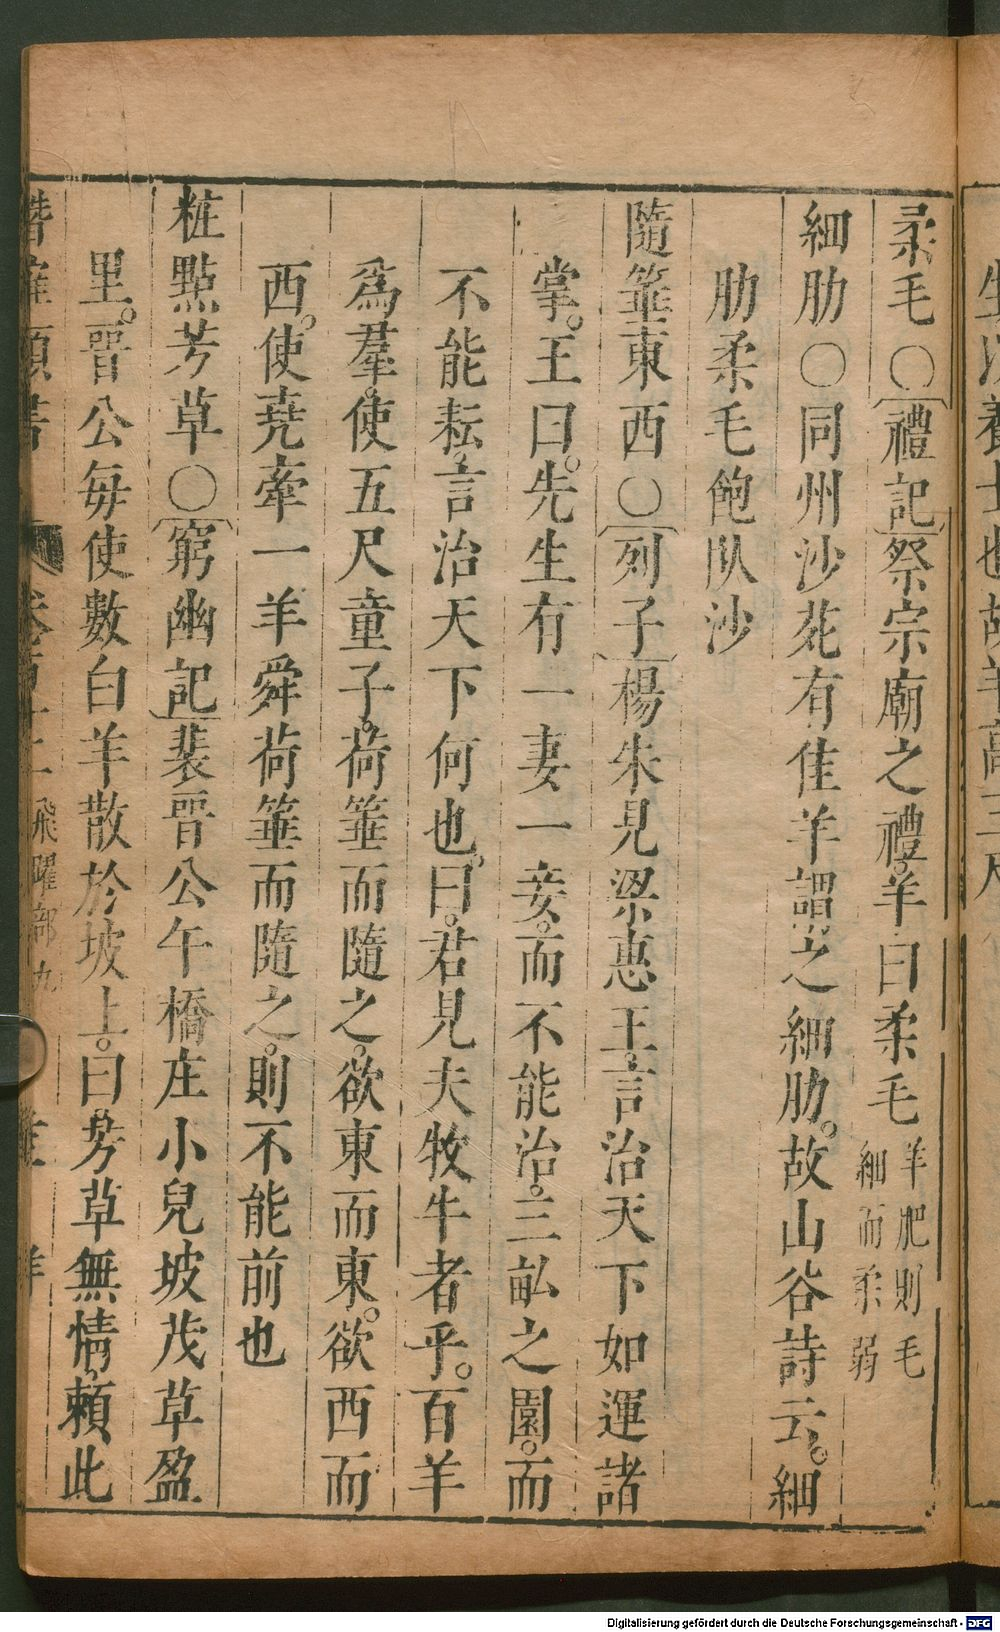 柔毛〇禮記祭宗廟之禮。羊曰柔毛羊肥則毛細而柔弱
細肋〇同州沙苑有佳羊謂之細肋。故山谷詩云。細
肋柔毛飽臥沙
隨箠東西〇列子楊朱見梁惠王。言治天下如運諸
掌。王曰。先生有一妻一妾。而不能治。三畝之園。而
不能耘。言治天下何也。曰。君見夫牧牛者乎。百羊
爲羣。使五尺童子。荷箠而隨之。欲東而東。欲西而
西。使堯牽一羊舜荷箠而隨之。則不能前也
粧點芳草〇窮幽記裴晉公午橋庄小兒坡茂草盈
里。晉公每使數白羊散於坡上。曰。芳草無情。賴此
飛躍部九
Digitalisierung gefördert durch die Deutsche Forschungsgemeinschaft - DFG